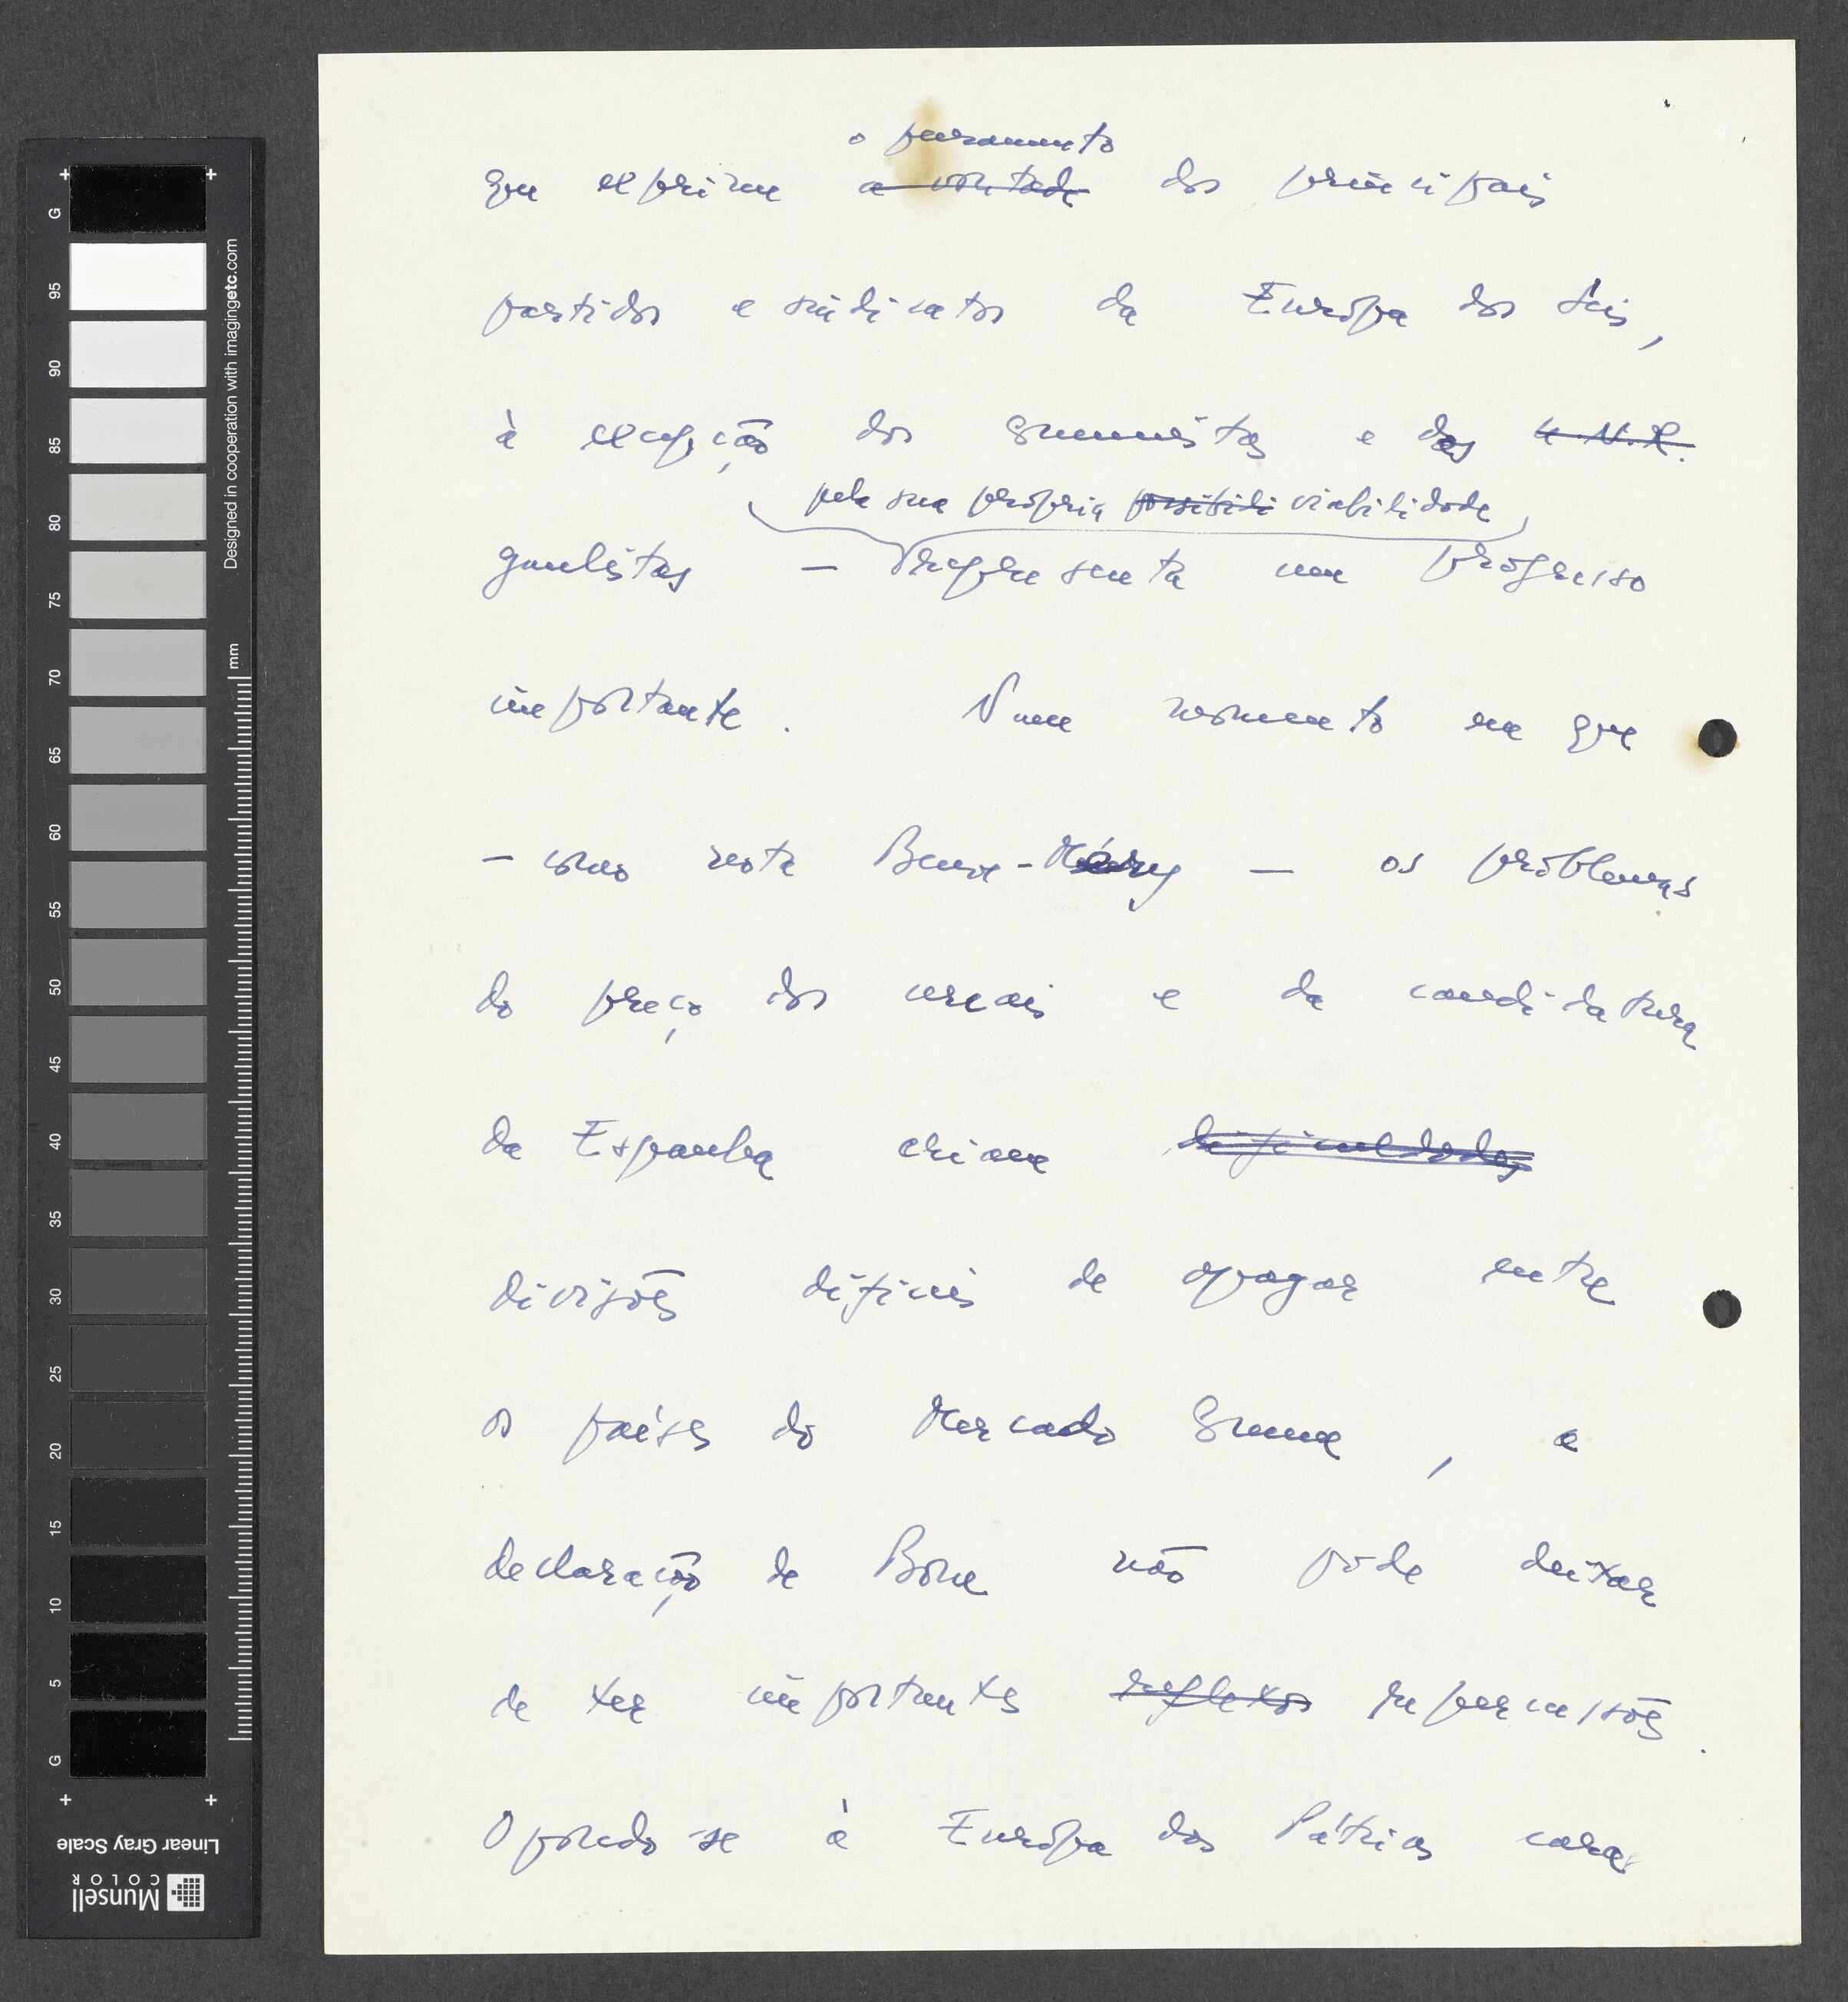 o pensamento
que exprime a vontade dos principais
partidos e sindicatos da Europa dos Seis,
à excepção dos comunistas e dos U.N.R.
pela sua própria possibili viabilidade
gaulistas — representa um progresso
importante. Num momento em que
— como nota Beuve-Méry — os problemas
do preço dos cereais e da candidatura
da Espanha criam dificuldades
divisões difíceis de apagar entre
os países do Mercado Comum, a
declaração de Bona não pode deixar
de ter importantes reflexos repercussões.
Opondo-se à Europa das Pátrias cara
G 95 90 85 80 75 70 65 60 55 50 45 40 35 30 25 20 15 10 5 G
Designed in cooperation with imagingetc.com
mm
Linear Gray Scale
Munsell
COLOR